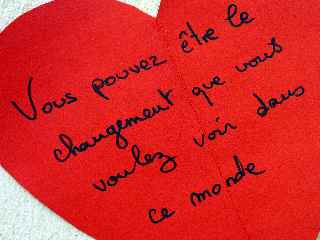 Vous pouvez être le
changement que vous
voulez voir dans
ce monde